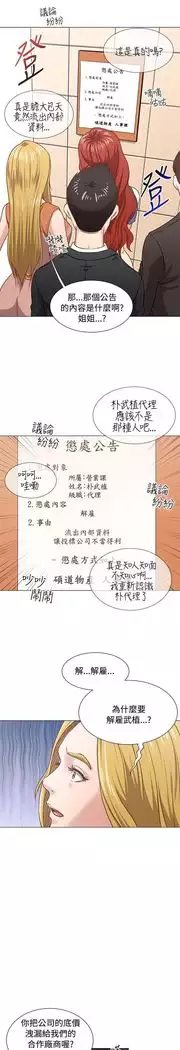 議論
紛紛
這是真的嗎?
登
懲處公告
嘀嘀
咕咕
真是膽大包天
竟然流出內部
資料...
登
那...那個公告
的內容是什麼啊?
姐姐...?
議論
紛紛
朴武植代理
應該不是
那種人吧...
懲處公告
對象
所屬:營業課
姓名:朴武植
級職:代理
呵呵...
哇嘞
議論
紛紛
2. 懲處內容
解雇
3. 事由
流出內部資料
讓投標公司不當得利
- 懲處方式
碩道物產 人
吵吵
鬧鬧
真是知人知面
不知心啊...
我重新認識
朴代理了
解...解雇...
為什麼要
解雇武植...?
你把公司的底價
洩漏給我們的
合作廠商喔?